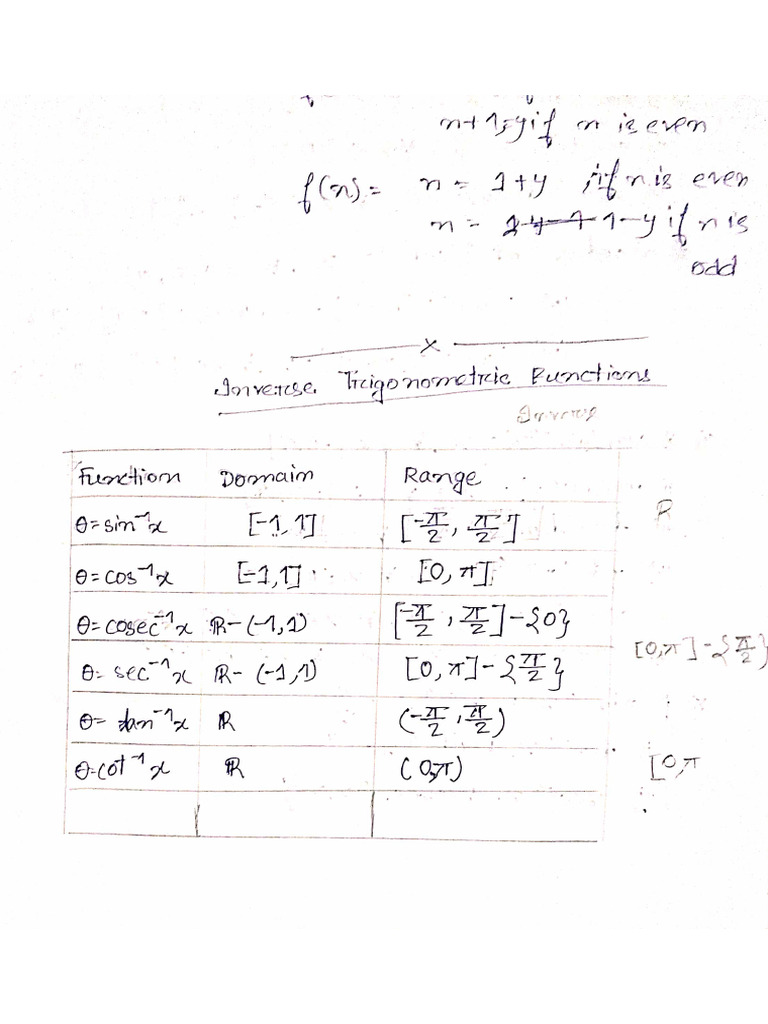 n+1=y if n is even
f(n) = n = 1+y , if n is even
n = 1-y if n is
odd
x
Inverse Trigonometric Functions
Inverse
Function Domain Range
θ=sin⁻¹x [-1, 1] [-π/2, π/2] R
θ=cos⁻¹x [-1,1] [0, π]
θ=cosec⁻¹x ℝ-(-1,1) [-π/2, π/2]-{0}
θ= sec⁻¹x ℝ- (-1,1) [0, π]-{π/2} [0,π]-{π/2}
θ= tan⁻¹x ℝ (-π/2, π/2)
θ=cot⁻¹x ℝ (0,π) [0,π